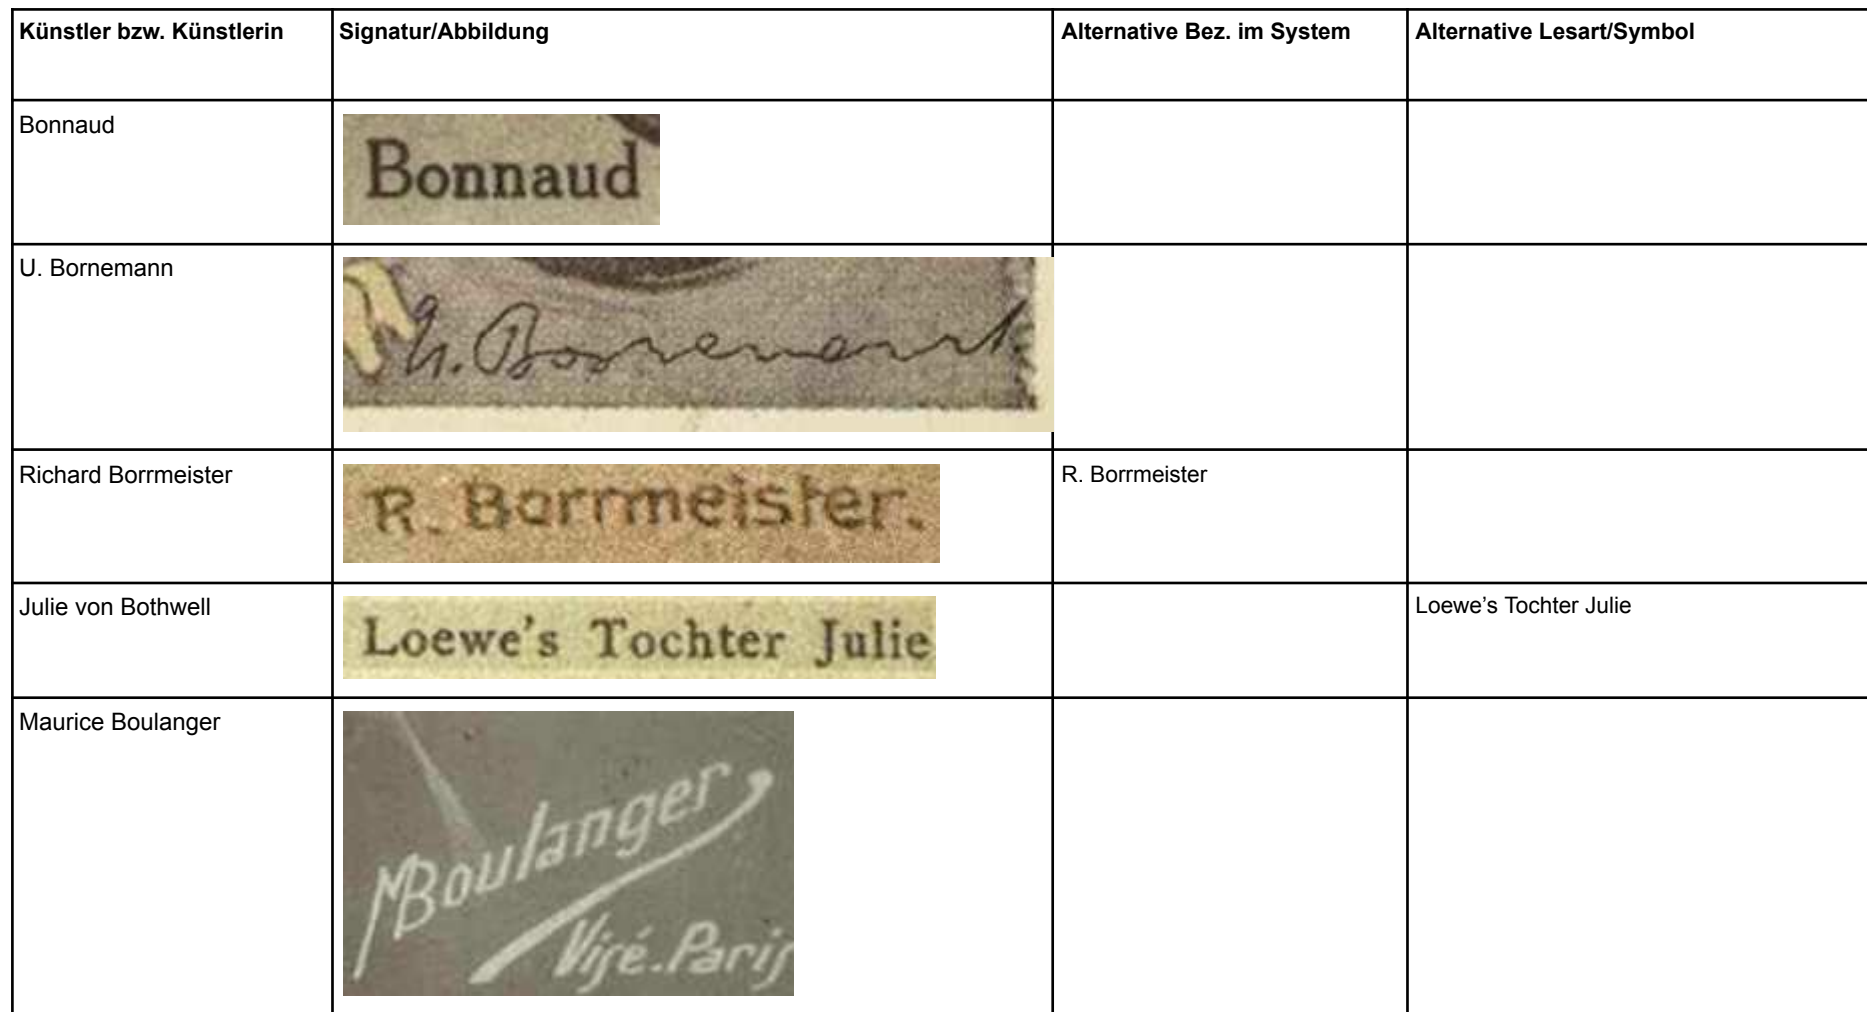 Künstler bzw. Künstlerin Signatur/Abbildung Alternative Bez. im System Alternative Lesart/Symbol
Bonnaud
Bonnaud
U. Bornemann
U. Bornemann
Richard Borrmeister R. Borrmeister
R. Borrmeister.
Julie von Bothwell Loewe’s Tochter Julie
Loewe's Tochter Julie
Maurice Boulanger
MBoulanger
Visé-Paris